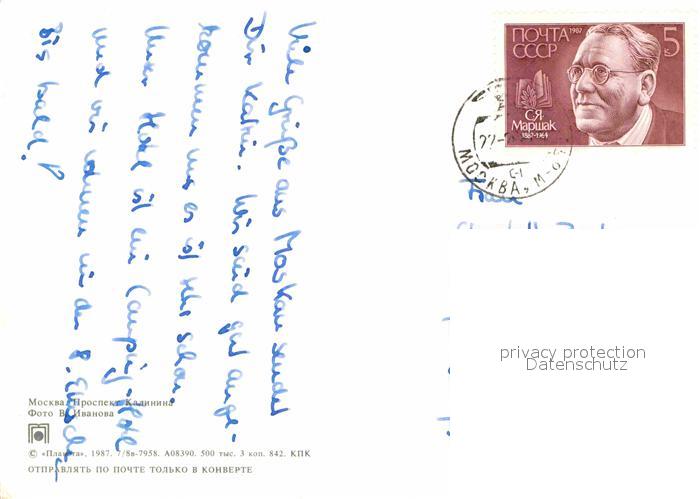 Viele Grüße aus Moskau sendet
Dir Kathrin. Wir sind gut ange-
kommen und es ist sehr schön.
Unser Hotel ist ein Camping-Hotel
und wir wohnen in der 8. Etage
Bis bald!
ПОЧТА 1987
СССР
5
С.Я.
Маршак
1887-1964
22
МОСКВА, М-
Frau
privacy protection
Datenschutz
Москва. Проспект Калинина
Фото В. Иванова
© «Планета», 1987. 7/8в-7958. А08390. 500 тыс. 3 коп. 842. КПК
ОТПРАВЛЯТЬ ПО ПОЧТЕ ТОЛЬКО В КОНВЕРТЕ